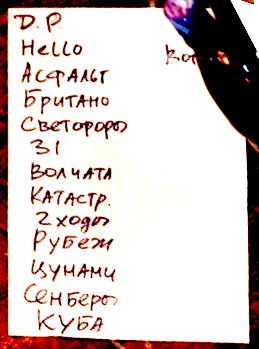 D.P.
Hello
Асфальт
Британо
Светофоры
31
Волчата
Катастр.
2 ходы
Рубеж
Цунами
Сенберы
КУБА